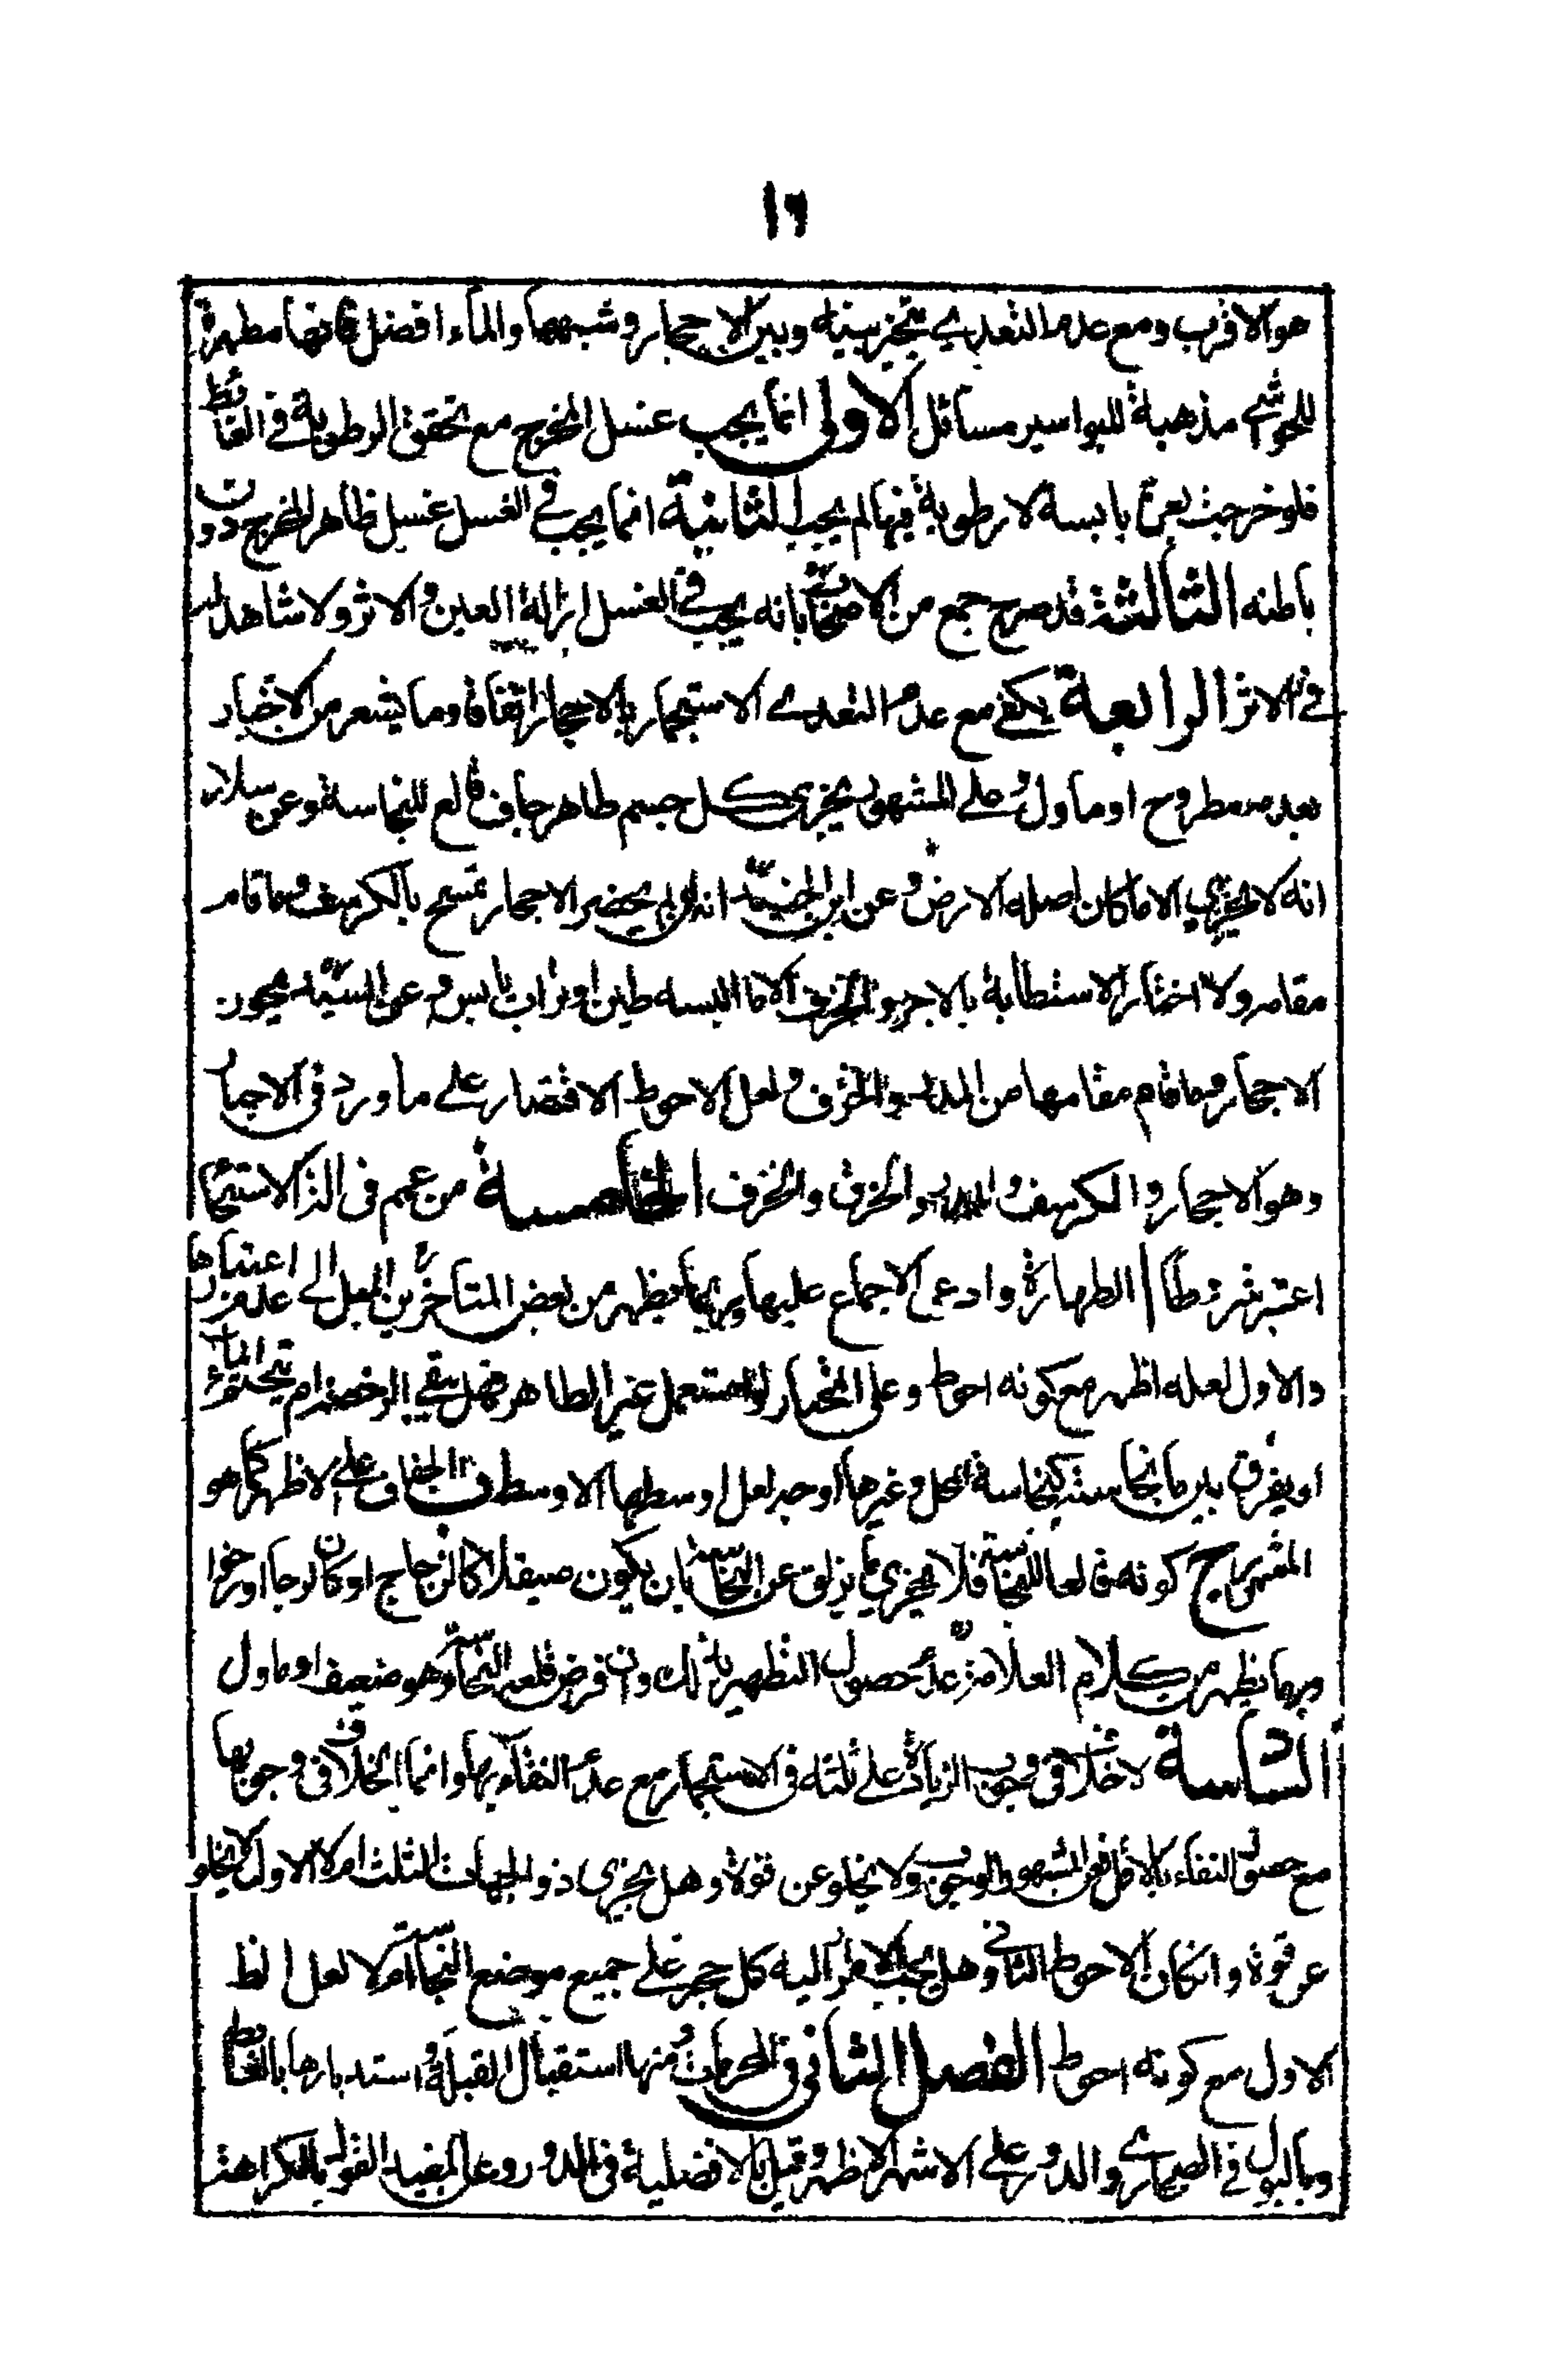 ١٦
هو الاقرب ومع عدم التعدي يتخير بينه وبين الاحجار وشبهها والماء افضل فانها مطهرة
للحواشي مذهبة للبواسير مسائل الاولى انما يجب غسل المخرج مع تحقق الرطوبة في الغائط
فلو خرجت بعرة يابسة لا رطوبة فيها لم يجب الثانية انما يجب في الغسل غسل ظاهر المخرج دون
باطنه الثالثة قد صرح جمع من الاصحاب بانه يجب في الغسل ازالة العين والاثر ولا شاهد له
في الاثر الرابعة يكفي مع عدم التعدي الاستجمار بالاحجار اتفاقا وما يشعر من الاخبار
بعدمه مطروح او ماول وعلى المشهور يجزي كل جسم طاهر جاف قالع للنجاسة وعن سلار
انه لا يجزي الا ما كان اصله الارض وعن ابن الجنيد انه ان لم يحضر الاحجار تمسح بالكرسف وما قام
مقامه ولا اختار الاستطابة بالاجر والخزف الا ما البسه طين او تراب يابس وعن السيد يجوز
الاحجار وما قام مقامها من المدر والخزف ولعل الاحوط الاقتصار على ما ورد في الاخبار
وهو الاحجار والكرسف والمدر والخرق والخزف الخامسة من عمم في الة الاستنجا
اعتبر شروطا الطهارة وادعى الاجماع عليها وربما يظهر من بعض المتاخرين الميل الى عدم اعتبارها
والاول لعله اظهر مع كونه احوط وعلى المختار لو استعمل غير الطاهر فهل يبقي الرخصة ام يتحتم الماء
او يفرق بين ما نجاسته كنجاسة المحل وغيرها اوجه لعل اوسطها الاوسط والجفاف على الاظهر كما هو
المشهور كونه قالعا للنجاسة فلا يجزي ما يزلق عن النجاسة بان يكون صيقلا كالزجاج او كان لزجا او رخوا
وربما يظهر من كلام العلامة عدم حصول التطهير بذلك وان فرض قلعه النجاسة وهو ضعيف او ماول
السادسة لا خلاف في وجوب الزيادة على ثلثه في الاستجمار مع عدم النقاء بها وانما الخلاف في وجوبها
مع حصول النقاء بالاقل فعن المشهور الوجوب ولا يخلو عن قوة وهل يجزي ذو الجهات الثلث ام لا الاول لا يخلو
عن قوة وان كان الاحوط الثاني وهل يجب امرار اليه كل حجر على جميع موضع النجاسة ام لا لعل الظ
الاول مع كونه احوط الفصل الثاني في المحرمات ومنها استقبال القبلة واستدبارها بالغائط
وبالبول في الصحاري والدور على الاشهر الاظهر وقيل بالافضلية في الدور وعن المفيد القول بالكراهة